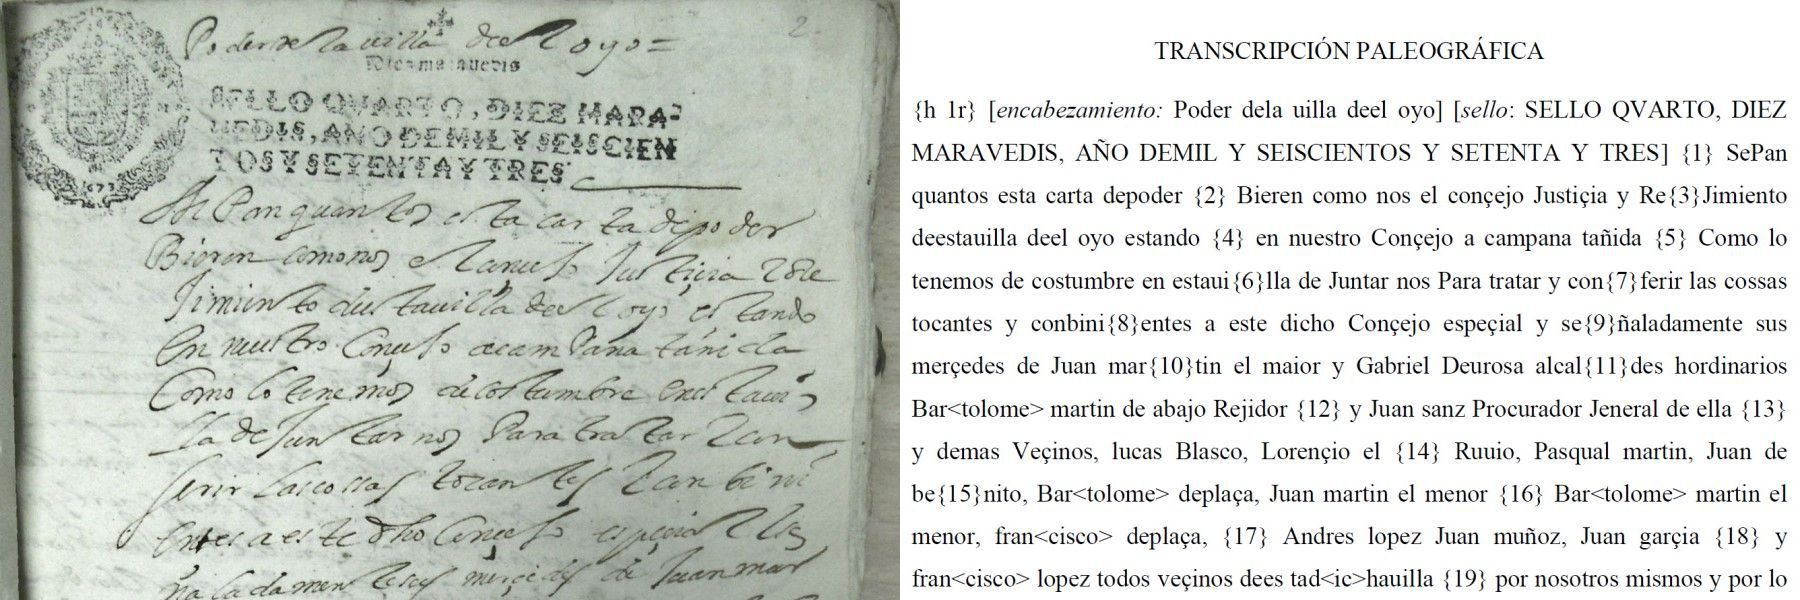 2
Poder dela uilla deel oyo =
Diez marauedis
SELLO QVARTO, DIEZ MARA-
VEDIS, AÑO DE MIL Y SEISCIEN
TOS Y SETENTA Y TRES
1673
SePan quantos esta carta depoder
Bieren como nos el conçejo Justiçia y Re
Jimiento deestauilla deel oyo estando
en nuestro Conçejo a campana tañida
Como lo tenemos de costumbre en estaui
lla de Juntar nos Para tratar y con
ferir las cossas tocantes y conbini
entes a este dho Conçejo espeçial y se
ñaladamente sus merçedes de Juan mar
TRANSCRIPCIÓN PALEOGRÁFICA
{h 1r} [encabezamiento: Poder dela uilla deel oyo] [sello: SELLO QVARTO, DIEZ
MARAVEDIS, AÑO DEMIL Y SEISCIENTOS Y SETENTA Y TRES] {1} SePan
quantos esta carta depoder {2} Bieren como nos el conçejo Justiçia y Re{3}Jimiento
deestauilla deel oyo estando {4} en nuestro Conçejo a campana tañida {5} Como lo
tenemos de costumbre en estaui{6}lla de Juntar nos Para tratar y con{7}ferir las cossas
tocantes y conbini{8}entes a este dicho Conçejo espeçial y se{9}ñaladamente sus
merçedes de Juan mar{10}tin el maior y Gabriel Deurosa alcal{11}des hordinarios
Bar<tolome> martin de abajo Rejidor {12} y Juan sanz Procurador Jeneral de ella {13}
y demas Veçinos, lucas Blasco, Lorençio el {14} Ruuio, Pasqual martin, Juan de
be{15}nito, Bar<tolome> deplaça, Juan martin el menor {16} Bar<tolome> martin el
menor, fran<cisco> deplaça, {17} Andres lopez Juan muñoz, Juan garçia {18} y
fran<cisco> lopez todos veçinos dees tad<ic>hauilla {19} por nosotros mismos y por lo